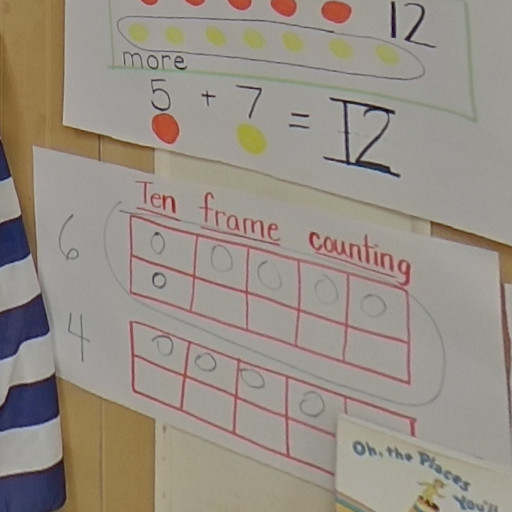 12
more
5 + 7 = 12
Ten frame counting
6
4
Oh, the Places
You'll